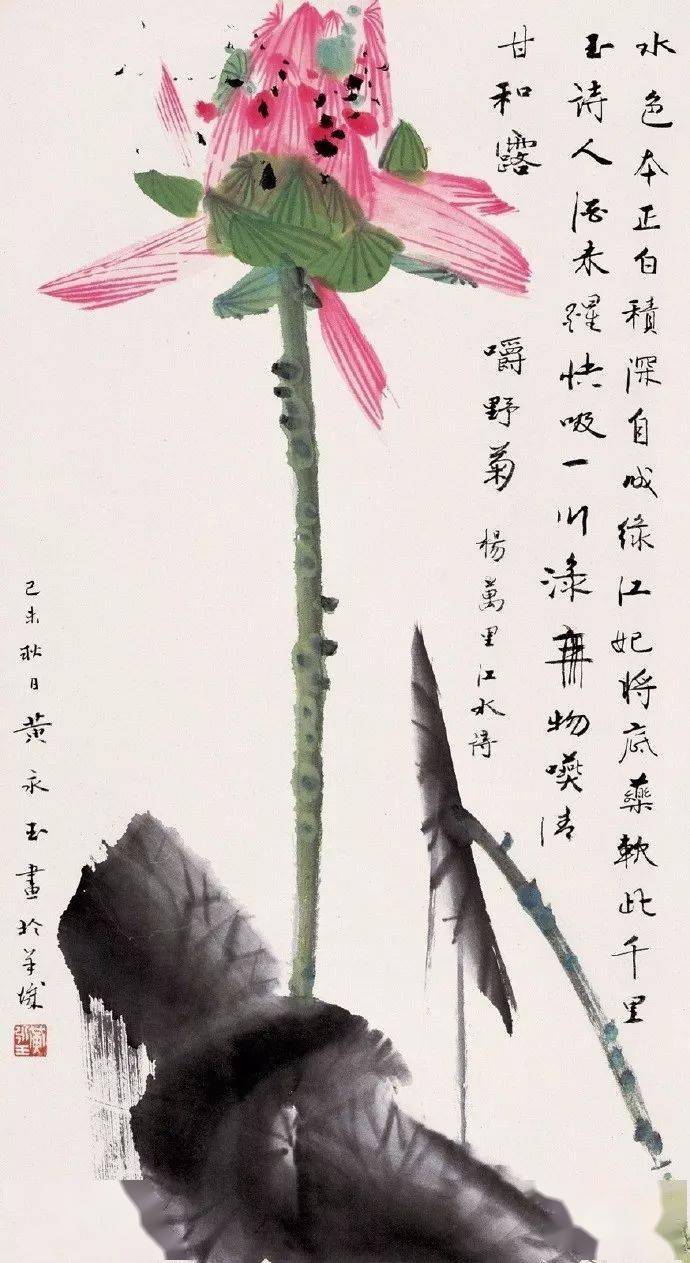 水色本正白積深自成綠江妃將底藥軟此千里
玉詩人酒未醒快吸一川淥無物嚥清
甘和露
嚼野菊
楊萬里江水詩
己未秋日黃永玉畫於羊城
黃永玉